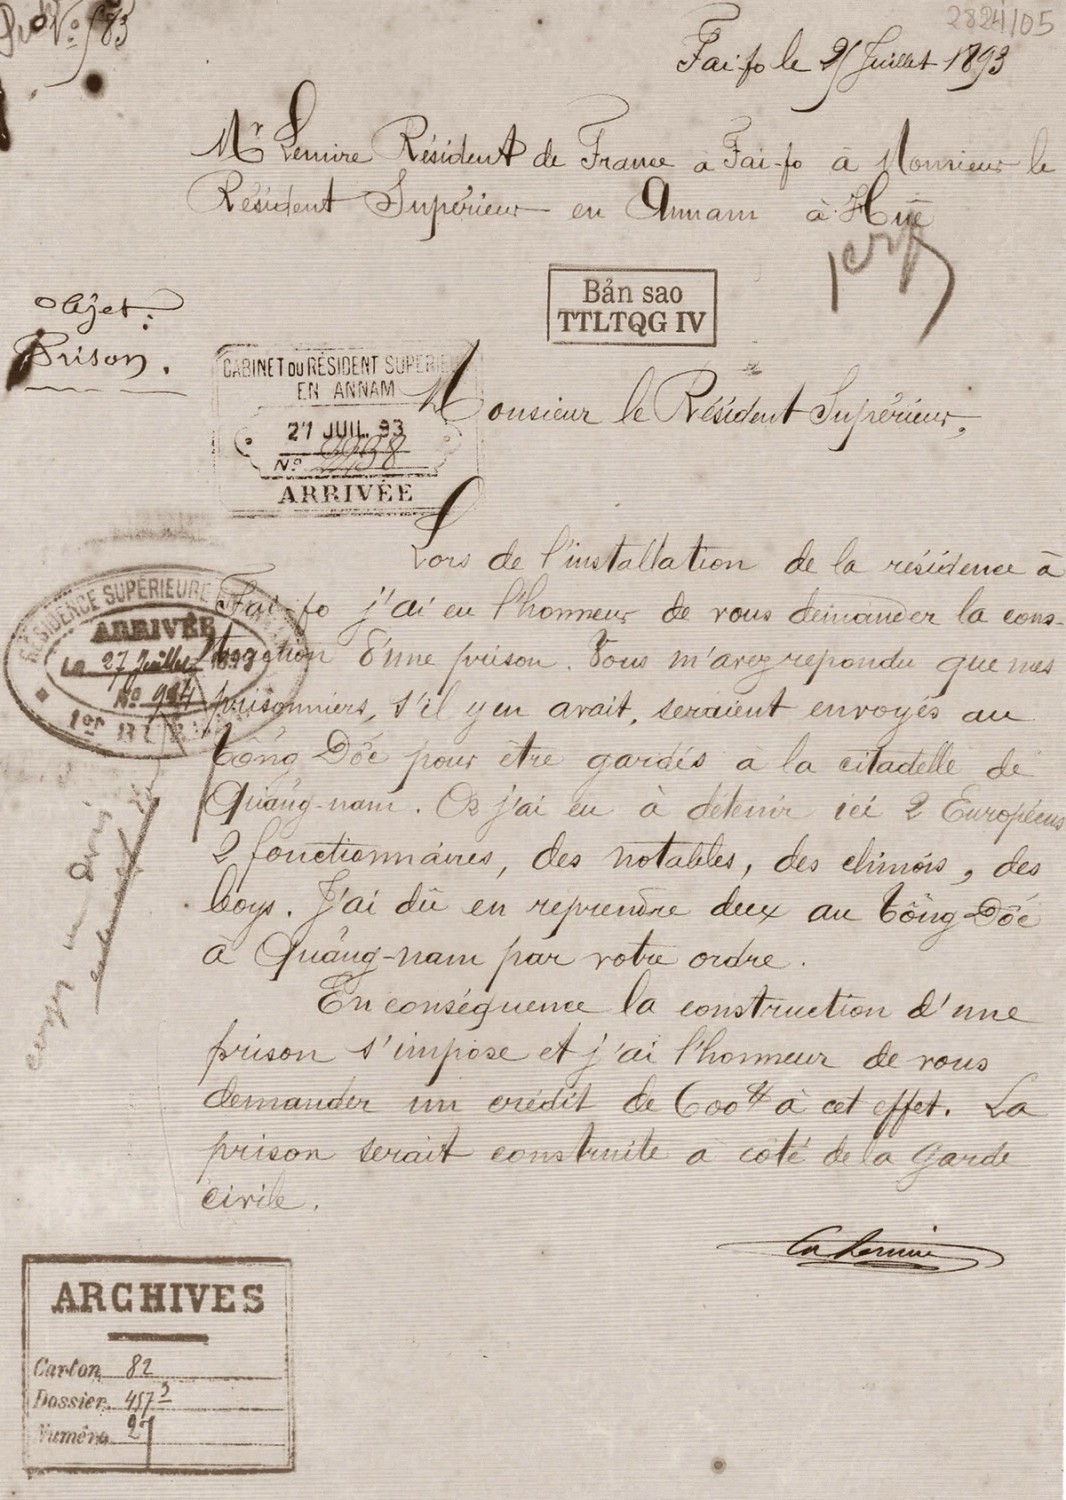 No 583
2824/05
Fai-fo le 25 Juillet 1893
Mr Lemire Résident de France à Fai-fo à Monsieur le
Résident Supérieur en Annam à Hué
Bản sao
TTLTQG IV
Objet:
Prison.
CABINET DU RÉSIDENT SUPERIE
EN ANNAM
27 JUIL. 93
No 2238
ARRIVÉE
Monsieur le Résident Supérieur,
Lors de l'installation de la résidence à
Fai-fo j'ai eu l'honneur de vous demander la cons-
truction d'une prison. Vous m'avez repondu que mes
prisonniers, s'il y en avait, seraient envoyés au
Tông Dôc pour être gardés a la citadelle de
Quảng-nam. Or j'ai eu à détenir ici 2 Européens
2 fonctionnaires, des notables, des chinois, des
boys. J'ai dû en reprendre deux au Tông-Dôc
a Quảng-nam par votre ordre.
En conséquence la construction d'une
prison s'impose et j'ai l'honneur de vous
demander un crédit de 600$ à cet effet. La
prison serait construite a coté de la Garde
civile.
RÉSIDENCE SUPÉRIEURE
ARRIVÉE
LE 27 Juillet 1893
No 984
1er BUREAU
Ch Lemire
ARCHIVES
Carton 82
Dossier 457
Numéro 27